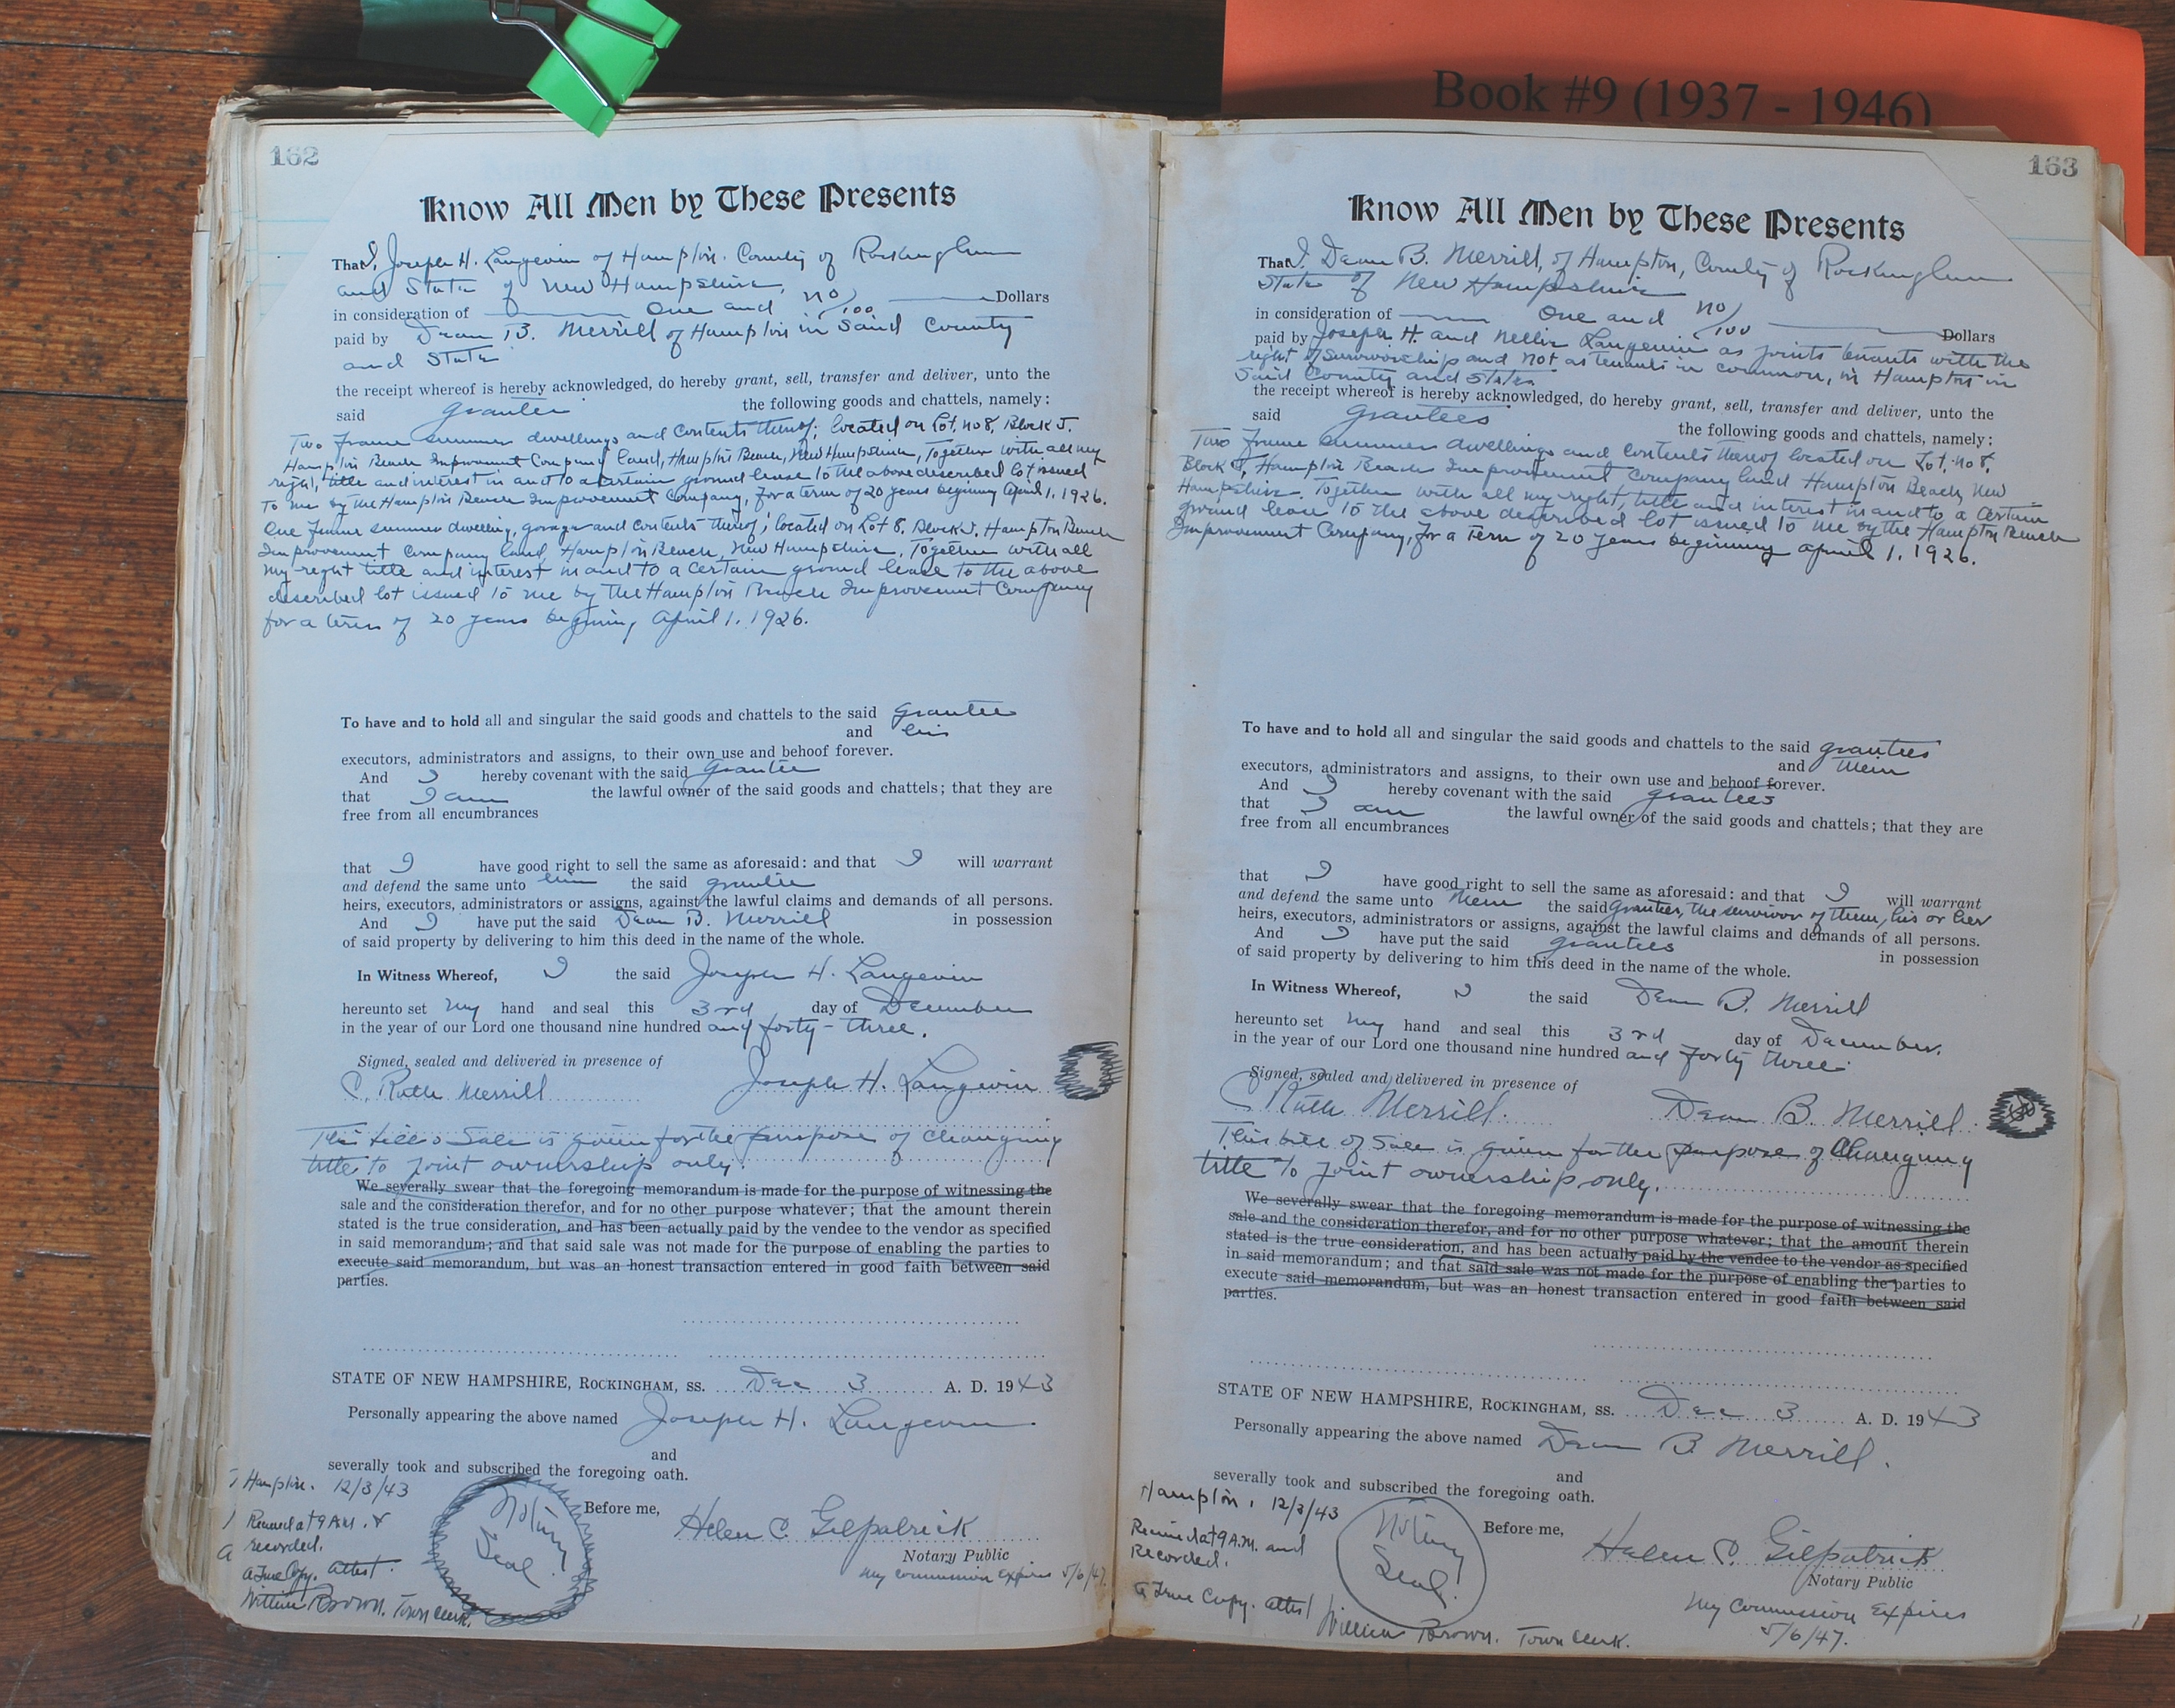 Book #9 (1937 - 1946)
162
Know All Men by These Presents
That I, Joseph H. Langevin of Hampton. County of Rockingham
and State of New Hampshire,
in consideration of One and no/100 Dollars
paid by Dean B. Merrill of Hampton in Said County
and State
the receipt whereof is hereby acknowledged, do hereby grant, sell, transfer and deliver, unto the
said grantee the following goods and chattels, namely:
Two frame summer dwellings and contents thereof; located on Lot. no 8, Block J.
Hampton Beach Improvement Company land, Hampton Beach, New Hampshire, Together with all my
right, title and interest in and to a certain ground lease to the above described lot issued
to me by the Hampton Beach Improvement Company, for a term of 20 years beginning April 1, 1926.
One frame summer dwelling, garage and contents thereof; located on Lot 8, Block J. Hampton Beach
Improvement Company land, Hampton Beach, New Hampshire, Together with all
my right title and interest in and to a certain ground lease to the above
described lot issued to me by the Hampton Beach Improvement Company
for a term of 20 years begining April 1. 1926.
To have and to hold all and singular the said goods and chattels to the said grantee
and his
executors, administrators and assigns, to their own use and behoof forever.
And I hereby covenant with the said grantee
that I am the lawful owner of the said goods and chattels; that they are
free from all encumbrances
that I have good right to sell the same as aforesaid: and that I will warrant
and defend the same unto him the said grantee
heirs, executors, administrators or assigns, against the lawful claims and demands of all persons.
And I have put the said Dean B. Merrill in possession
of said property by delivering to him this deed in the name of the whole.
In Witness Whereof, I the said Joseph H. Langevin
hereunto set my hand and seal this 3rd day of December
in the year of our Lord one thousand nine hundred and forty-three.
Signed, sealed and delivered in presence of
C. Ruth Merrill Joseph H. Langevin
This bill o Sale is given for the purpose of changing
title to joint ownership only.
We severally swear that the foregoing memorandum is made for the purpose of witnessing the
sale and the consideration therefor, and for no other purpose whatever; that the amount therein
stated is the true consideration, and has been actually paid by the vendee to the vendor as specified
in said memorandum; and that said sale was not made for the purpose of enabling the parties to
execute said memorandum, but was an honest transaction entered in good faith between said
parties.
STATE OF NEW HAMPSHIRE, ROCKINGHAM, SS. Dec 3 A. D. 1943
Personally appearing the above named Joseph H. Langevin
and
severally took and subscribed the foregoing oath.
Hampton. 12/3/43
Before me, Helen C. Gilpatrick
Notary Public
My commission Expires 5/6/47.
Notary
Seal
Received at 9 A.M. &
recorded.
a True Copy. attest.
William Brown. Town Clerk.
163
Know All Men by These Presents
That I, Dean B. Merrill, of Hampton, County of Rockingham
State of New Hampshire
in consideration of One and no/100 Dollars
paid by Joseph H. and Nellie Langevin as joints tenants with the
right of survivorship and not as tenants in common, in Hampton in
said County and State
the receipt whereof is hereby acknowledged, do hereby grant, sell, transfer and deliver, unto the
said grantees the following goods and chattels, namely:
Two frame summer dwellings and contents thereof located on Lot. no 8,
Block J, Hampton Beach Improvement Company land Hampton Beach, New
Hampshire. Together with all my right, title and interest in and to a certain
ground lease to the above described lot issued to me by the Hampton Beach
Improvement Company, for a term of 20 years beginning April 1. 1926.
To have and to hold all and singular the said goods and chattels to the said grantees
and their
executors, administrators and assigns, to their own use and behoof forever.
And I hereby covenant with the said grantees
that I am the lawful owner of the said goods and chattels; that they are
free from all encumbrances
that I have good right to sell the same as aforesaid: and that I will warrant
and defend the same unto them the said grantees, the survivor of them, his or her
heirs, executors, administrators or assigns, against the lawful claims and demands of all persons.
And I have put the said grantees in possession
of said property by delivering to him this deed in the name of the whole.
In Witness Whereof, I the said Dean B. Merrill
hereunto set my hand and seal this 3rd day of December.
in the year of our Lord one thousand nine hundred and forty three
Signed, sealed and delivered in presence of
C Ruth Merrill. Dean B. Merrill.
This bill of Sale is given for the purpose of Changing
title to joint ownership only.
We severally swear that the foregoing memorandum is made for the purpose of witnessing the
sale and the consideration therefor, and for no other purpose whatever; that the amount therein
stated is the true consideration, and has been actually paid by the vendee to the vendor as specified
in said memorandum; and that said sale was not made for the purpose of enabling the parties to
execute said memorandum, but was an honest transaction entered in good faith between said
parties.
STATE OF NEW HAMPSHIRE, ROCKINGHAM, SS. Dec 3 A. D. 1943
Personally appearing the above named Dean B Merrill.
and
severally took and subscribed the foregoing oath.
Hampton, 12/3/43
Before me, Helen C. Gilpatrick
Notary Public
My Commission Expires
5/6/47.
Notary
Seal
Received at 9 A.M. and
Recorded.
a True Copy. attest
William Brown. Town Clerk.